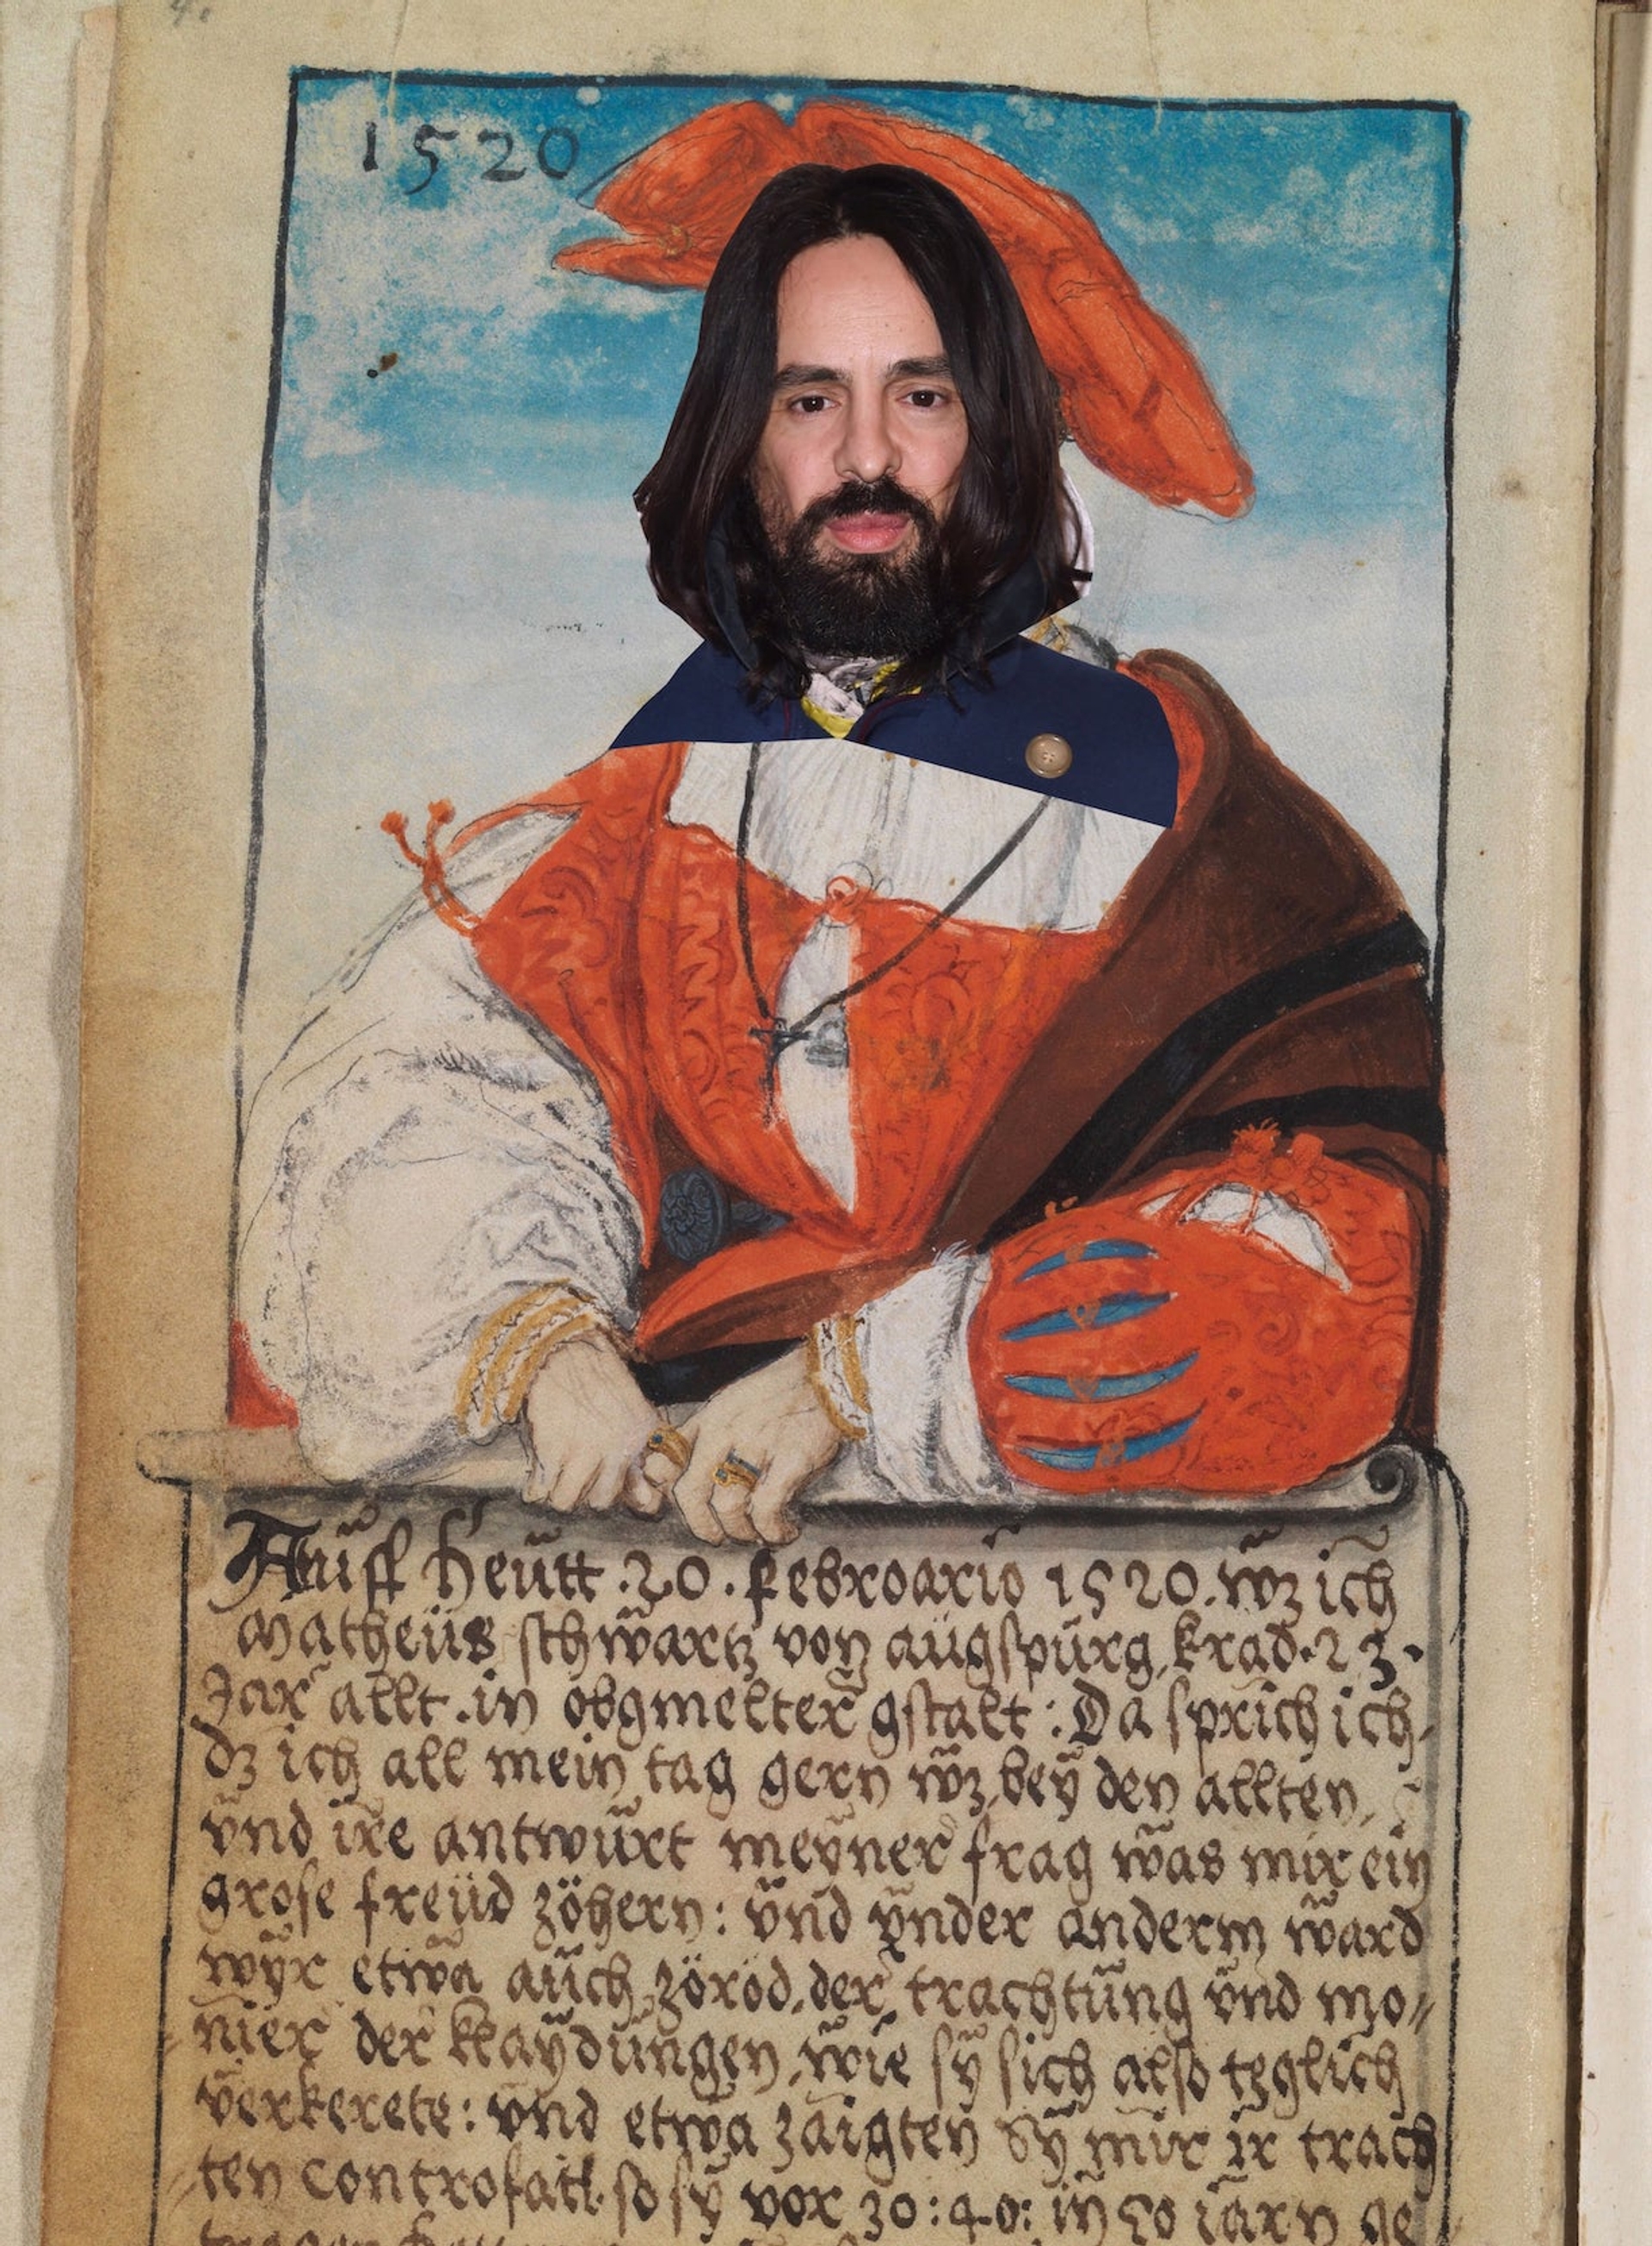 1520
Aŭff heŭtt .20. febroario 1520. wz ich
Matheüs schwartz von aŭgspŭrg, krad. 23.
Jar allt. in obgmelter gstalt: Da sprich ich,
dz ich all mein tag gern wz, beÿ den allten,
vnd ire antwŭrt meyner frag was mir ein
grose freüd zŏhern: vnd vnder anderm ward
wyr etwa aŭch zŏrŏd, der trachtŭng vnd mo//
nier der klaydŭngen, wie sy sich also teglich
verkerete: vnd etwa zaigten Sy mir ir trach
ten controfatt, so sy vor 30: 40: in 50 iarn ge//